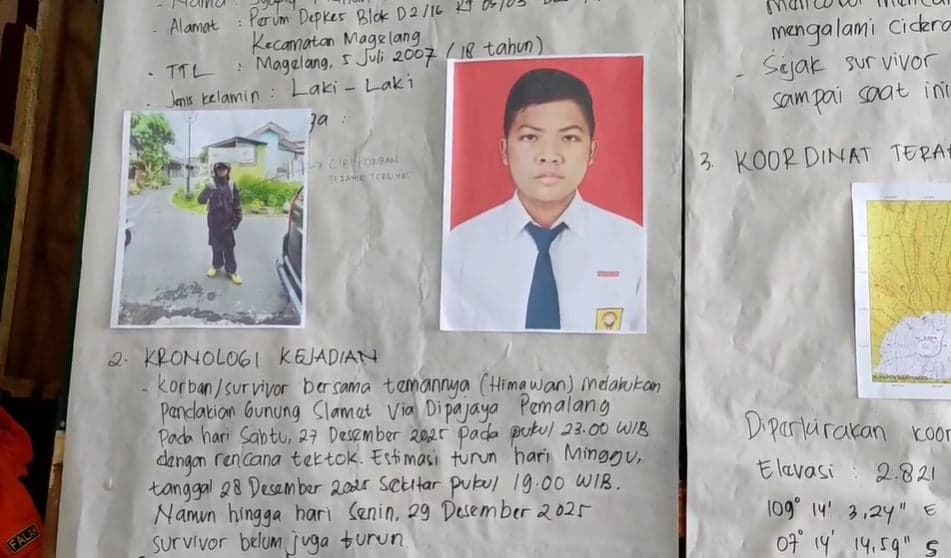 - Nama :
- Alamat : Perum Depkes Blok D2/16 RT 05/03
Kecamatan Magelang
- TTL : Magelang, 5 Juli 2007 (18 tahun)
- Jenis kelamin : Laki - Laki
ga :
→ CIRI KORBAN
TERAKHIR TERLIHAT
2. KRONOLOGI KEJADIAN
- Korban/survivor bersama temannya (Himawan) melakukan
Pendakian Gunung Slamet Via Dipajaya Pemalang
Pada hari Sabtu, 27 Desember 2025 Pada pukul 23.00 WIB
dengan rencana tektok. Estimasi turun hari Minggu,
tanggal 28 Desember 2025 Sekitar pukul 19.00 WIB.
Namun hingga hari Senin, 29 Desember 2025
survivor belum juga turun.
mengalami cidera
- Sejak survivor
sampai saat ini
3. KOORDINAT TERA
Diperkirakan koor
Elevasi : 2.821
109° 14' 3,24" E
07° 14' 14.59" S